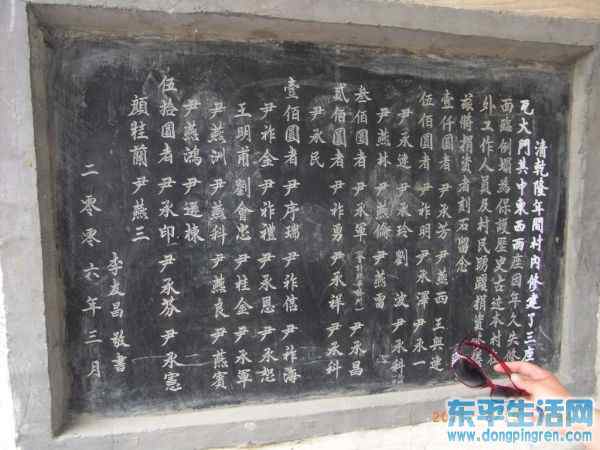 清乾隆年間村内修建了三座
瓦大門其中東西兩座因年久失修
面臨倒塌為保護歷史古迹本村在
外工作人員及村民踴躍捐資
兹將捐資者刻石留念
壹仟圓者 尹承芳 尹燕西 王與連
伍佰圓者 尹祚明 尹承澤 尹承一
尹承連 尹承玲 劉波 尹承科
尹燕林 尹燕倫 尹燕雷
叁佰圓者 尹承軍 尹承昌
贰佰圓者 尹祚勇 尹承祥 尹承科
尹承民
壹佰圓者 尹序瑞 尹祚信 尹祚海
尹祚金 尹祚禮 尹承恩 尹承恕
王明甫 劉會忠 尹桂金 尹承軍
尹燕洲 尹燕科 尹燕良 尹燕賓
尹燕鴻 尹運棟
伍拾圓者 尹承印 尹承芬 尹承憲
顔鞋蘭 尹燕三
二零零六年三月
李友昌 敬書
东平生活网
www.dongpingren.com